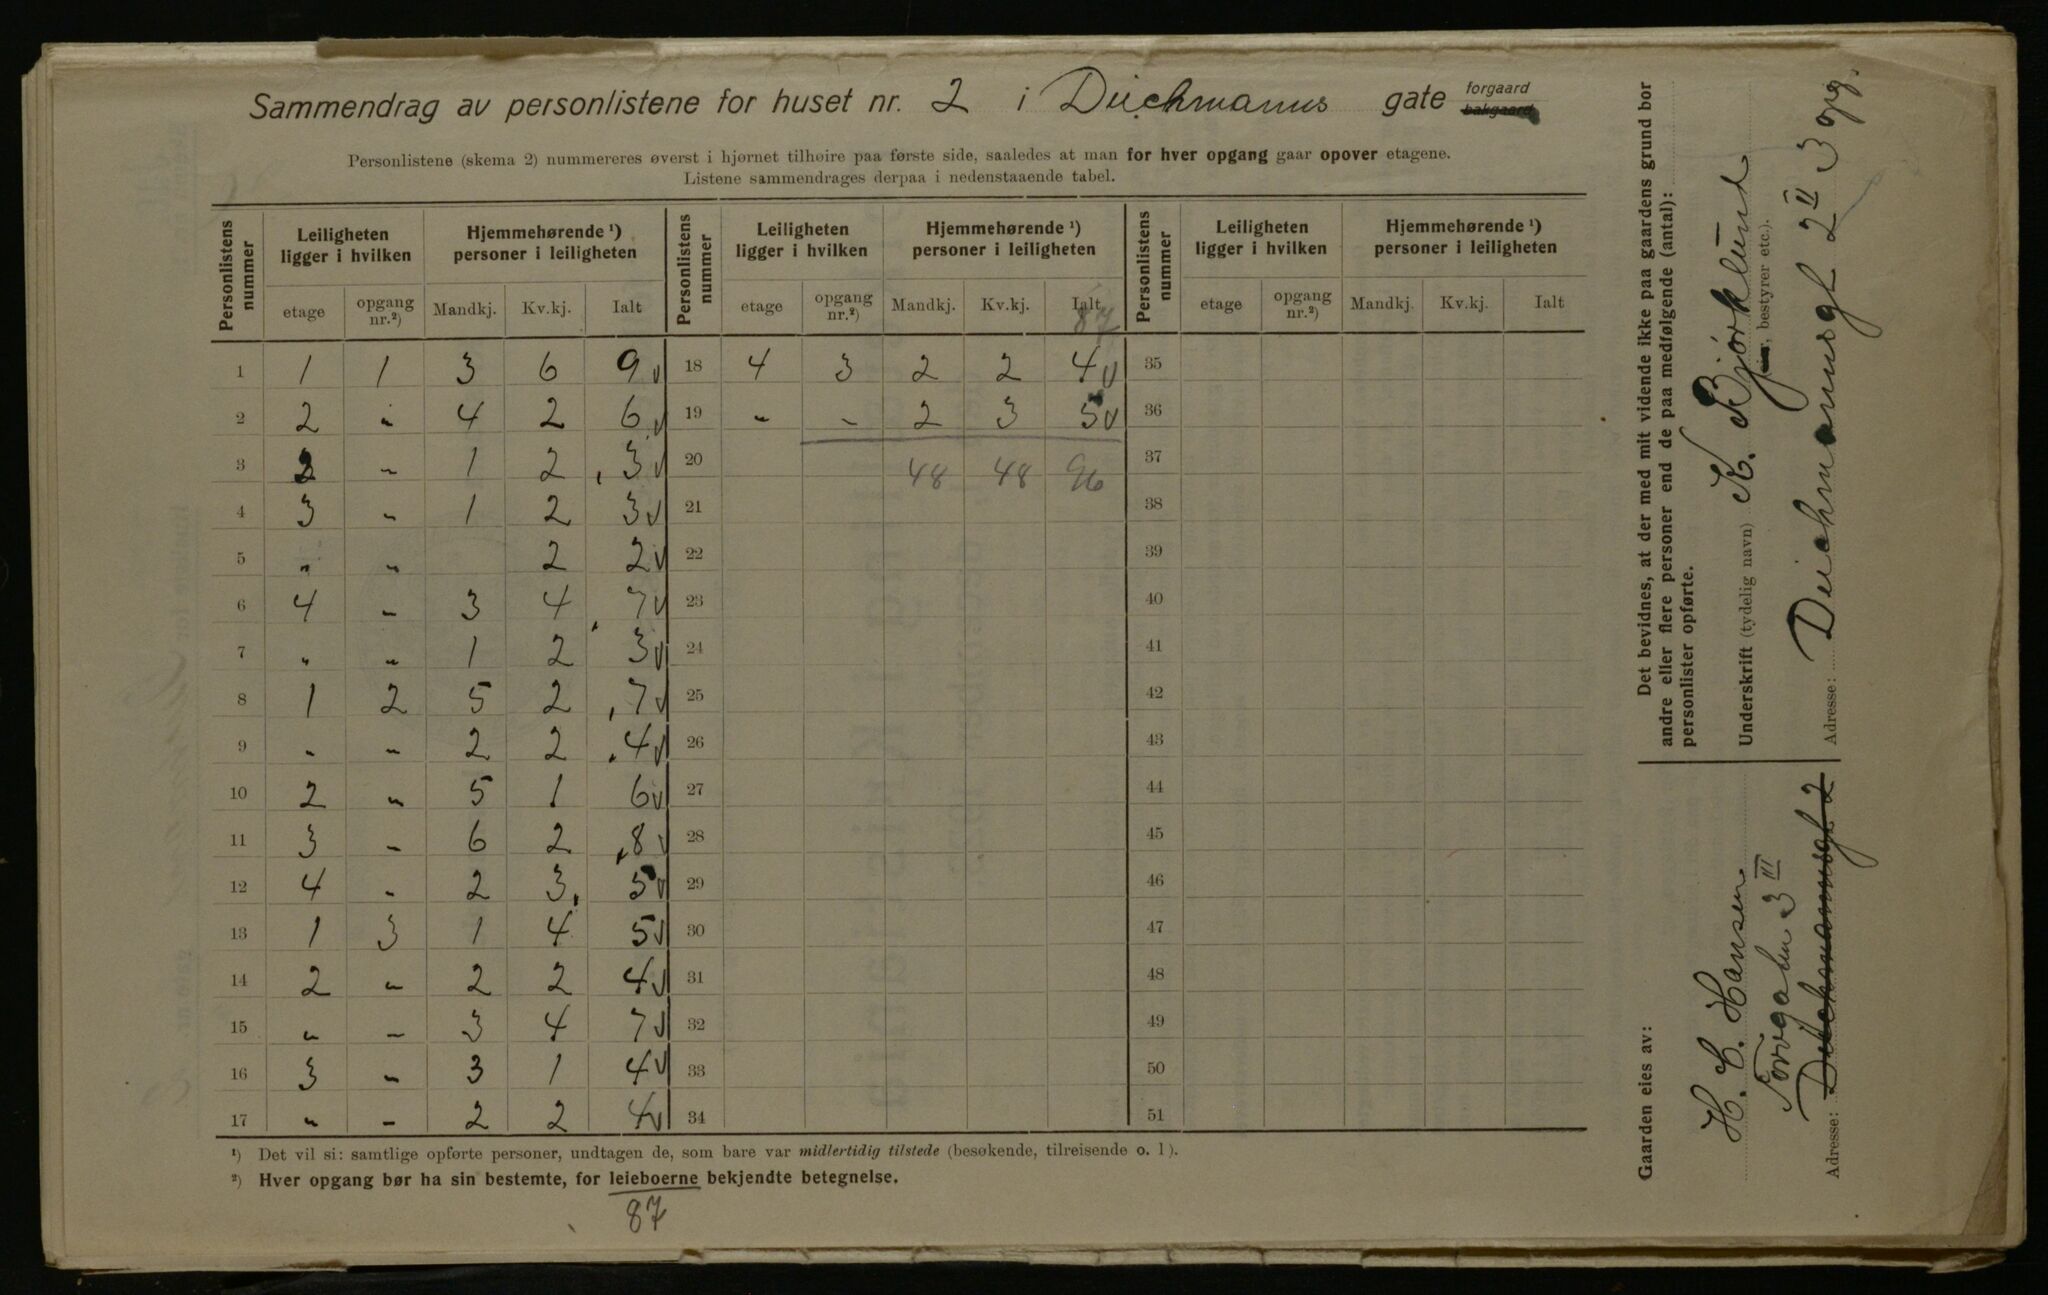 Sammendrag av personlistene for huset nr. 2 i Deichmanns gate forgaard bakgaard
Personlistene (skema 2) nummereres øverst i hjørnet tilhøire paa første side, saaledes at man for hver opgang gaar opover etagene.
Listene sammendrages derpaa i nedenstaaende tabel.
Personlistens nummer | Leiligheten ligger i hvilken | Hjemmehørende ¹) personer i leiligheten | Personlistens nummer | Leiligheten ligger i hvilken | Hjemmehørende ¹) personer i leiligheten | Personlistens nummer | Leiligheten ligger i hvilken | Hjemmehørende ¹) personer i leiligheten
etage | opgang nr.²) | Mandkj. | Kv.kj. | Ialt | etage | opgang nr.²) | Mandkj. | Kv.kj. | Ialt | etage | opgang nr.²) | Mandkj. | Kv.kj. | Ialt
87
1 1 1 3 6 9 v 18 4 3 2 2 4 v 35
2 2 " 4 2 6 v 19 " " 2 3 5 v 36
3 2 " 1 2 3 v 20 48 48 96 37
4 3 " 1 2 3 v 21 38
5 " " 2 2 v 22 39
6 4 " 3 4 7 v 23 40
7 " " 1 2 3 v 24 41
8 1 2 5 2 7 v 25 42
9 " " 2 2 4 v 26 43
10 2 " 5 1 6 v 27 44
11 3 " 6 2 8 v 28 45
12 4 " 2 3 5 v 29 46
13 1 3 1 4 5 v 30 47
14 2 " 2 2 4 v 31 48
15 " " 3 4 7 v 32 49
16 3 " 3 1 4 v 33 50
17 " " 2 2 4 v 34 51
¹) Det vil si: samtlige opførte personer, undtagen de, som bare var midlertidig tilstede (besøkende, tilreisende o. l).
²) Hver opgang bør ha sin bestemte, for leieboerne bekjendte betegnelse.
87
Det bevidnes, at der med mit vidende ikke paa gaardens grund bor
andre eller flere personer end de paa medfølgende (antal):
personlister opførte.
Underskrift (tydelig navn) K. Bjørklund
, bestyrer etc.).
Adresse: Deichmannsgt 2 II 3 opg.
Gaarden eies av:
H. C. Hansen
3 III
Adresse: Deichmannsgt 2